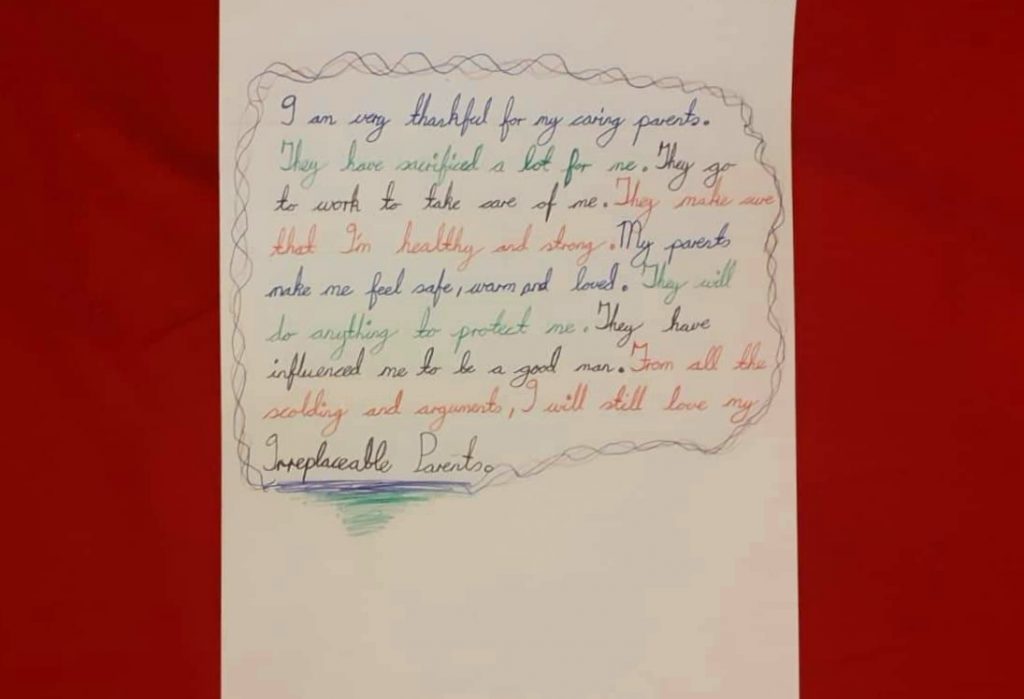 I am very thankful for my caring parents.
They have sacrificed a lot for me. They go
to work to take care of me. They make sure
that I'm healthy and strong. My parents
make me feel safe, warm and loved. They will
do anything to protect me. They have
influenced me to be a good man. From all the
scolding and arguments, I will still love my
Irreplaceable Parents.